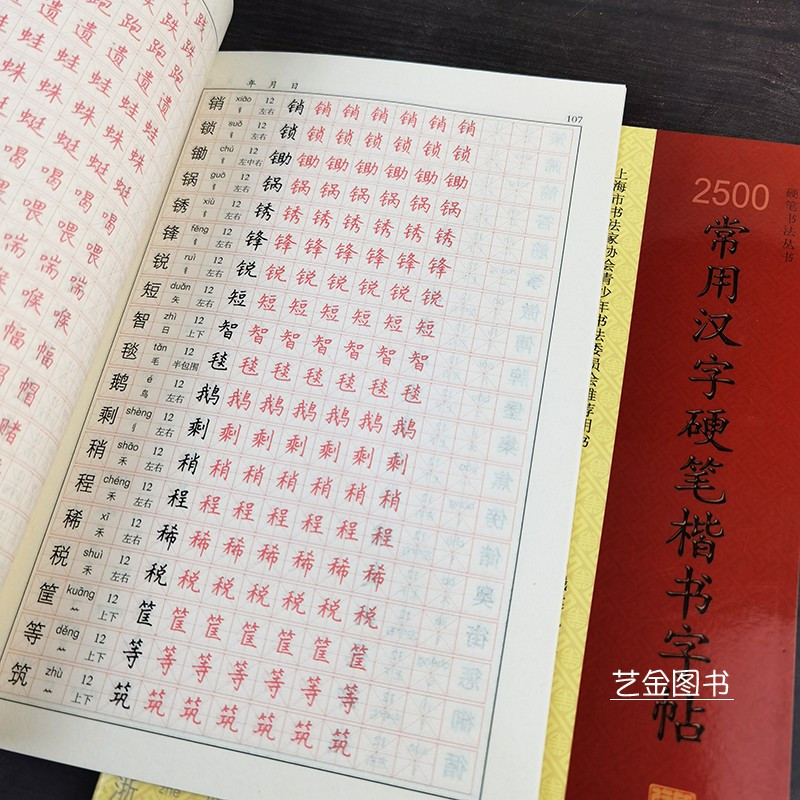 践 跌
跑 跌
遗 跑
蛙 遗 跑
蛛 蛙 遗
蜓 蛛 蛙
喝 蜓 蛛
喂 喝 蜓
喘 喂 喝
喉 喘 喂
幅 喉 喘
幅 喉
帽 幅
赌 帽
赌
年 月 日
107
销 xiāo 钅 12 左右 销 销 销 销 销 销 销
锁 suǒ 钅 12 左右 锁 锁 锁 锁 锁 锁 锁
锄 chú 钅 12 左中右 锄 锄 锄 锄 锄 锄 锄
锅 guō 钅 12 左右 锅 锅 锅 锅 锅 锅 锅
锈 xiù 钅 12 左右 锈 锈 锈 锈 锈 锈 锈
锋 fēng 钅 12 左右 锋 锋 锋 锋 锋 锋 锋
锐 ruì 钅 12 左右 锐 锐 锐 锐 锐 锐 锐
短 duǎn 矢 12 左右 短 短 短 短 短 短 短
智 zhì 日 12 上下 智 智 智 智 智 智 智
毯 tǎn 毛 12 半包围 毯 毯 毯 毯 毯 毯 毯
鹅 é 鸟 12 左右 鹅 鹅 鹅 鹅 鹅 鹅 鹅
剩 shèng 刂 12 左右 剩 剩 剩 剩 剩 剩 剩
稍 shāo 禾 12 左右 稍 稍 稍 稍 稍 稍 稍
程 chéng 禾 12 左右 程 程 程 程 程 程 程
稀 xī 禾 12 左右 稀 稀 稀 稀 稀 稀 稀
税 shuì 禾 12 左右 税 税 税 税 税 税 税
筐 kuāng ⺮ 12 上下 筐 筐 筐 筐 筐 筐 筐
等 děng ⺮ 12 上下 等 等 等 等 等 等 等
筑 zhù ⺮ 12 上下 筑 筑 筑 筑 筑 筑 筑
上海市书法家协会青少年书法委员会推荐用书
硬笔书法丛书
2500
常用汉字硬笔楷书字帖
艺金图书
浙
zhè